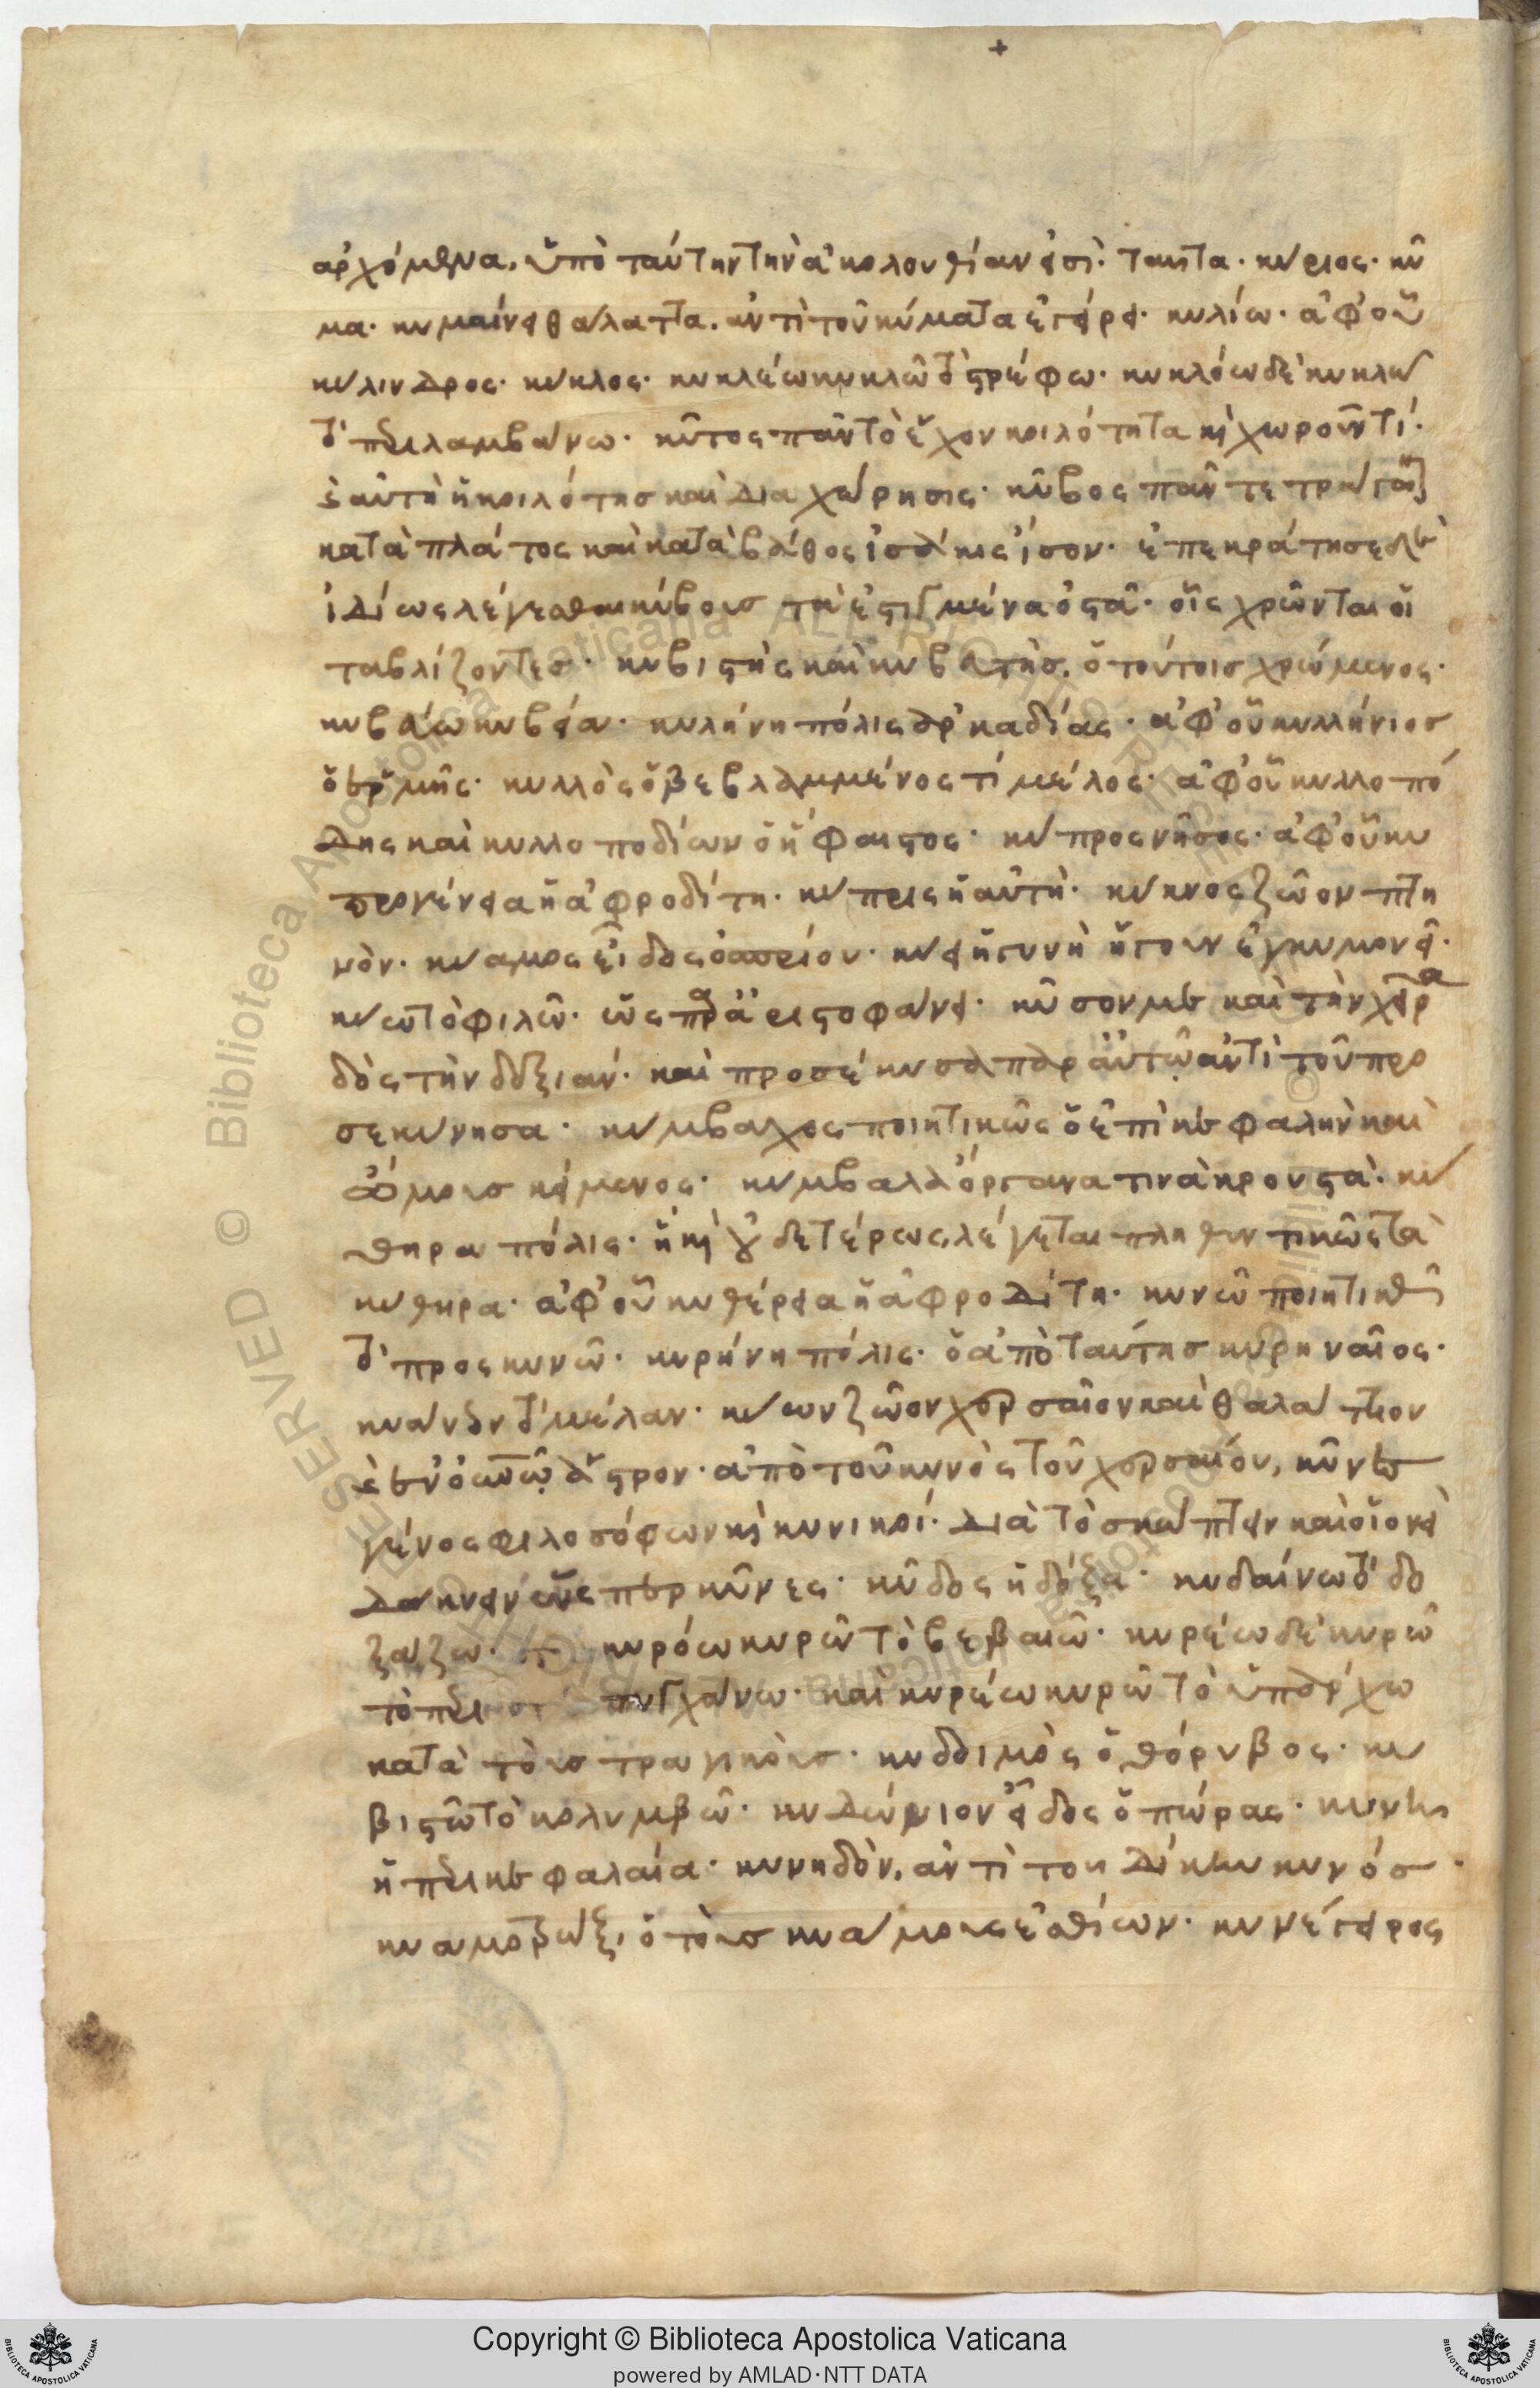 ἀρχόμενα, ὑπὸ ταύτην τὴν ἀκολουθίαν εἰσὶ ταῦτα· κύριος· κῦ
μα· κυμαίνει θάλαττα. ἀντὶ τοῦ κύματα ἐγείρει· κυλίω· ἀφ' οὗ
κύλινδρος· κύκλος· κυκλέω κυκλῶ τὸ στρέφω· κυκλόω δὲ κυκλῶ
τὸ περιλαμβάνω· κῦτος πᾶν τὸ ἔχον κοιλότητα καὶ χωροῦν τί·
ἢ αὐτὴ ἡ κοιλότης καὶ διαχώρησις· κῦβος πᾶν τετράγωνον
κατὰ πλάτος καὶ κατὰ βάθος ἰσάκις ἴσον· ἐπεκράτησε δὲ
ἰδίως λέγεσθαι κύβοις τὰ ἐστιγμένα ὀστᾶ· οἷς χρῶνται οἱ
ταβλίζοντες· κυβιστὴς καὶ κυβευτὴς. ὁ τούτοις χρώμενος·
κυβεύω κυβεία· κυλήνη πόλις ἀρκαδίας· ἀφ' οὗ κυλλήνιος
ὁ ἑρμῆς· κυλλὸς ὁ βεβλαμμένος τί μέλος· ἀφ' οὗ κυλλοπό
δης καὶ κυλλοποδίων ὁ ἥφαιστος· κύπρος νῆσος· ἀφ' οὗ κυ
προγένεια ἡ ἀφροδίτη· κύπρις ἡ αὐτὴ· κύκνος ζῶον πτη
νὸν· κύαμος εἶδος ὀσπρίου· κύει ἡ γυνὴ ἤγουν ἐγκυμονεῖ·
κύω τὸ φιλῶ· ὡς παρὰ ἀριστοφάνει· κῦσόν με καὶ τὴν χεῖρα
δὸς τὴν δεξιάν· καὶ προσέκυσα παρ' αὐτῷ ἀντὶ τοῦ προ
σεκύνησα· κύμβαχος ποιητικῶς ὁ ἐπὶ κεφαλὴν καὶ
ὤμοις κείμενος· κύμβαλα ὄργανα τινὰ κρουστά· κύ
θηρα πόλις· ἢ καὶ οὐδετέρως λέγεται πληθυντικῶς τὰ
κύθηρα· ἀφ' οὗ κυθέρεια ἡ ἀφροδίτη· κυνῶ ποιητικὸν
τὸ προσκυνῶ· κυρήνη πόλις· ὁ ἀπὸ ταύτης κυρηναῖος·
κυάνεον τὸ μέλαν· κύων ζῶον χερσαῖον καὶ θαλάττιον
ἄστρον· ἀπὸ τοῦ κυνὸς τοῦ χερσαίου, κῦνες
γένος φιλοσόφων καὶ κυνικοί· διὰ τὸ σκώπτειν καὶ οἱονεὶ
δάκνειν ὥσπερ κῦνες· κῦδος ἡ δόξα· κυδαίνω τὸ δο
ξάζω· κυρόω κυρῶ τὸ βεβαιῶ· κυρέω δὲ κυρῶ
τὸ τυγχάνω· καὶ κυρέω κυρῶ τὸ ὑπάρχω
κατὰ τοὺς τραγικοὺς· κυδοιμὸς ὁ θόρυβος· κυ
βιστῶ τὸ κολυμβῶ· κυδώνιον εἶδος ὀπώρας· κυνῆ
ἡ περικεφαλαία· κυνηδὸν, ἀντὶ τοῦ δίκην κυνός·
κυαμοτρώξ, ὁ τοὺς κυάμους ἐσθίων· κυνέγειρος